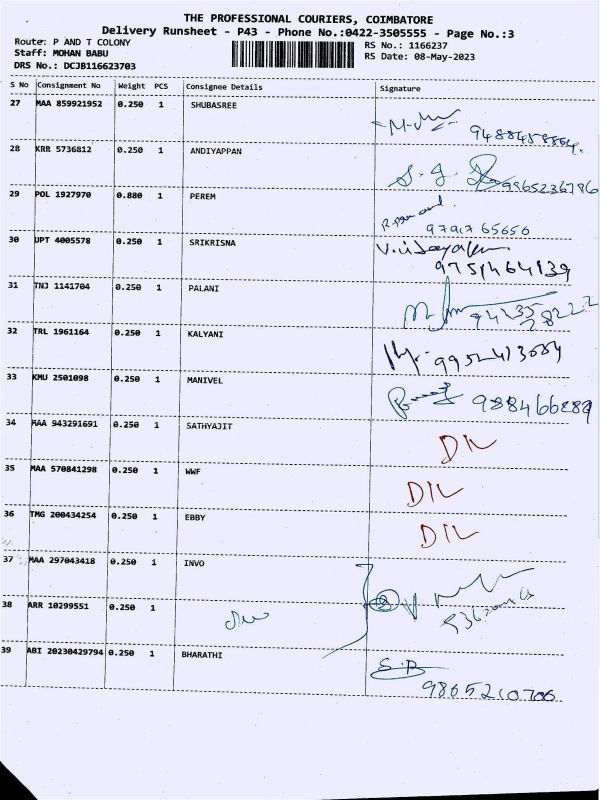 THE PROFESSIONAL COURIERS, COIMBATORE
Delivery Runsheet - P43 - Phone No.:0422-3505555 - Page No.:3
Route: P AND T COLONY
RS No.: 1166237
Staff: MOHAN BABU
RS Date: 08-May-2023
DRS No.: DCJB116623703
S No Consignment No Weight PCS Consignee Details Signature
27 MAA 859921952 0.250 1 SHUBASREE
28 KRR 5736812 0.250 1 ANDIYAPPAN
9865236786
29 POL 1927970 0.880 1 PEREM
9791765656
30 UPT 4005578 0.250 1 SRIKRISNA
9751464139
31 TNJ 1141704 0.250 1 PALANI
32 TRL 1961164 0.250 1 KALYANI
33 KMU 2501098 0.250 1 MANIVEL
34 MAA 943291691 0.250 1 SATHYAJIT
DIL
35 MAA 570841298 0.250 1 WWF
DIL
36 TMG 200434254 0.250 1 EBBY
DIL
37 MAA 297043418 0.250 1 INVO
38 ARR 10299551 0.250 1
39 ABI 20230429794 0.250 1 BHARATHI
9865210706